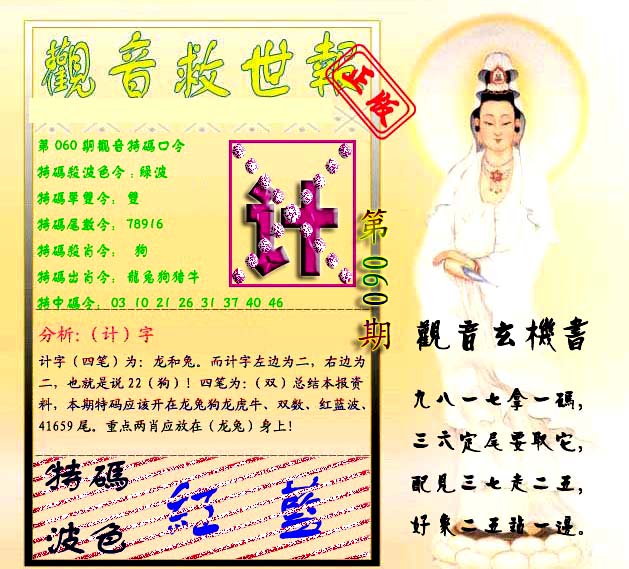 觀音救世報
第060期觀音特碼口令
特碼殺波色令:綠波
特碼單雙令: 雙
特碼尾數令: 78916
特碼殺肖令: 狗
特碼出肖令: 龍兔狗猪牛
特中碼令: 03 10 21 26 31 37 40 46
计
第060期
分析:(计)字
计字(四笔)为: 龙和兔。而计字左边为二, 右边为
二, 也就是说22(狗)! 四笔为:(双)总结本报资
料, 本期特码应该开在龙兔狗龙虎牛、双数、红蓝波、
41659尾。重点两肖应放在(龙兔)身上!
特碼
波色
紅 藍
觀音玄機書
九八一七拿一碼,
三六定尾要取它,
配見三七走二五,
好象二五站一邊。